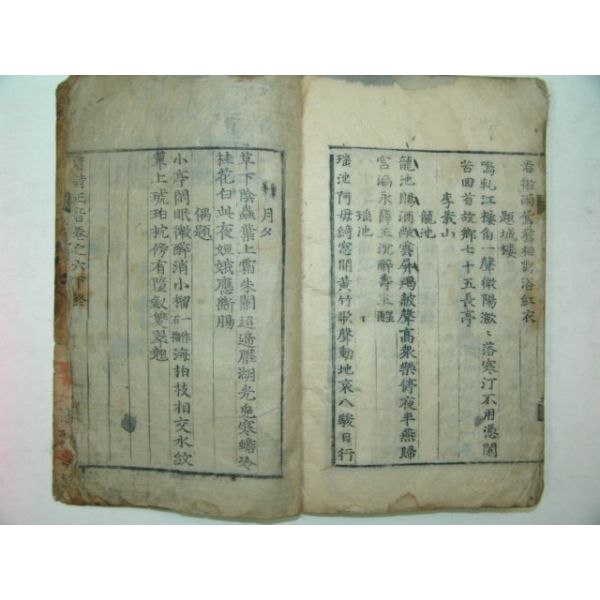 看微雨鴛鴦相對浴紅衣
題城樓
嗚軋江樓角一聲微陽瀲〻落寒汀不用憑闌
苦回首故鄉七十五長亭
李義山
龍池
龍池賜酒敞雲屏羯鼓聲高衆樂停夜半燕歸
宮漏永薛王沉醉壽王醒
瑤池
瑤池阿母綺窓開黃竹歌聲動地哀八駿日行
月夕
草下陰蟲葉上霜朱闌迢遞壓湖光兔寒蟾冷
桂花白此夜姮娥應斷腸
偶題
小亭閑眠微醉消小榴一作石榴海柏枝相交水紋
簟上琥珀枕傍有墮釵雙翠翹
唐詩正音卷之六下終